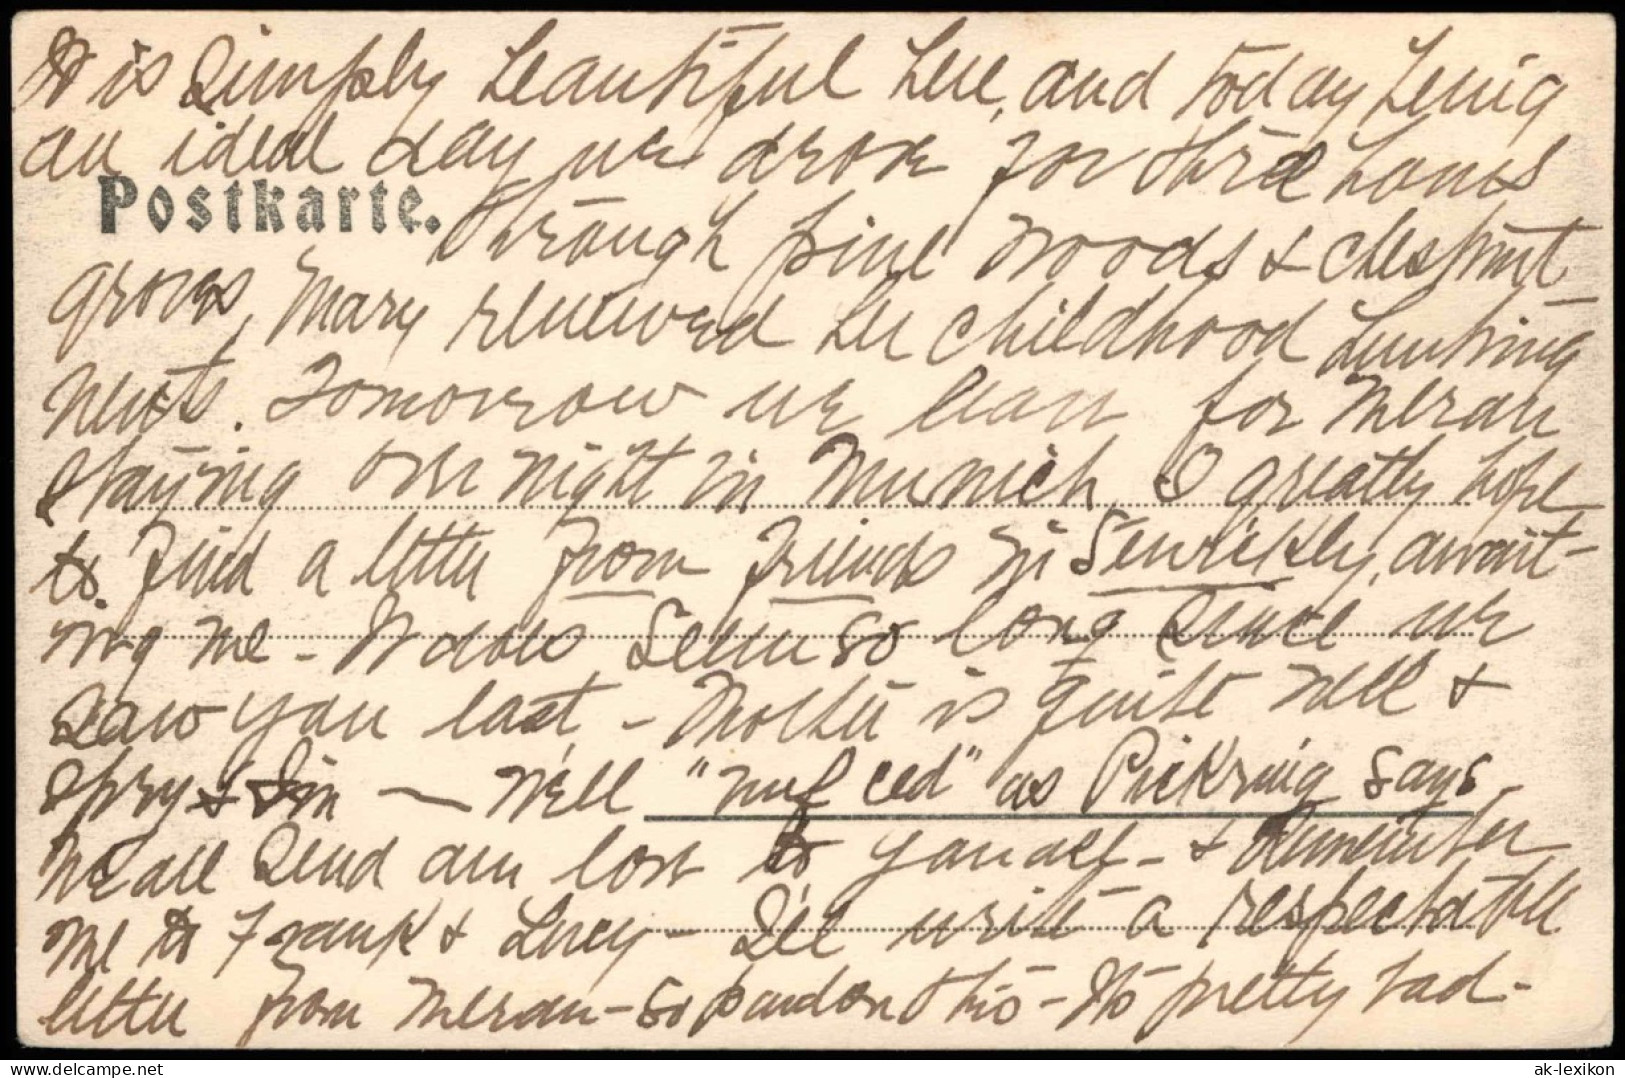 It is simply beautiful here, and today being
an ideal day we drove for three hours
Postkarte.
through pine woods & chestnut
groves, Mary renewed her childhood hunting
nuts. Tomorrow we leave for Meran
staying over night in Munich. I greatly hope
to find a letter from friends in Sewickley, await-
ing me - It does seem so long since we
saw you last - Mother is quite well &
spry & I'm — Well "nuf ced" as Pickering says
We all send our love to you all - & remember
me to Frank & Lucy - I'll write a respectable
letter from Meran - so pardon this - It's pretty bad -
www.ak-ansichtskarten.de
ak-lexikon